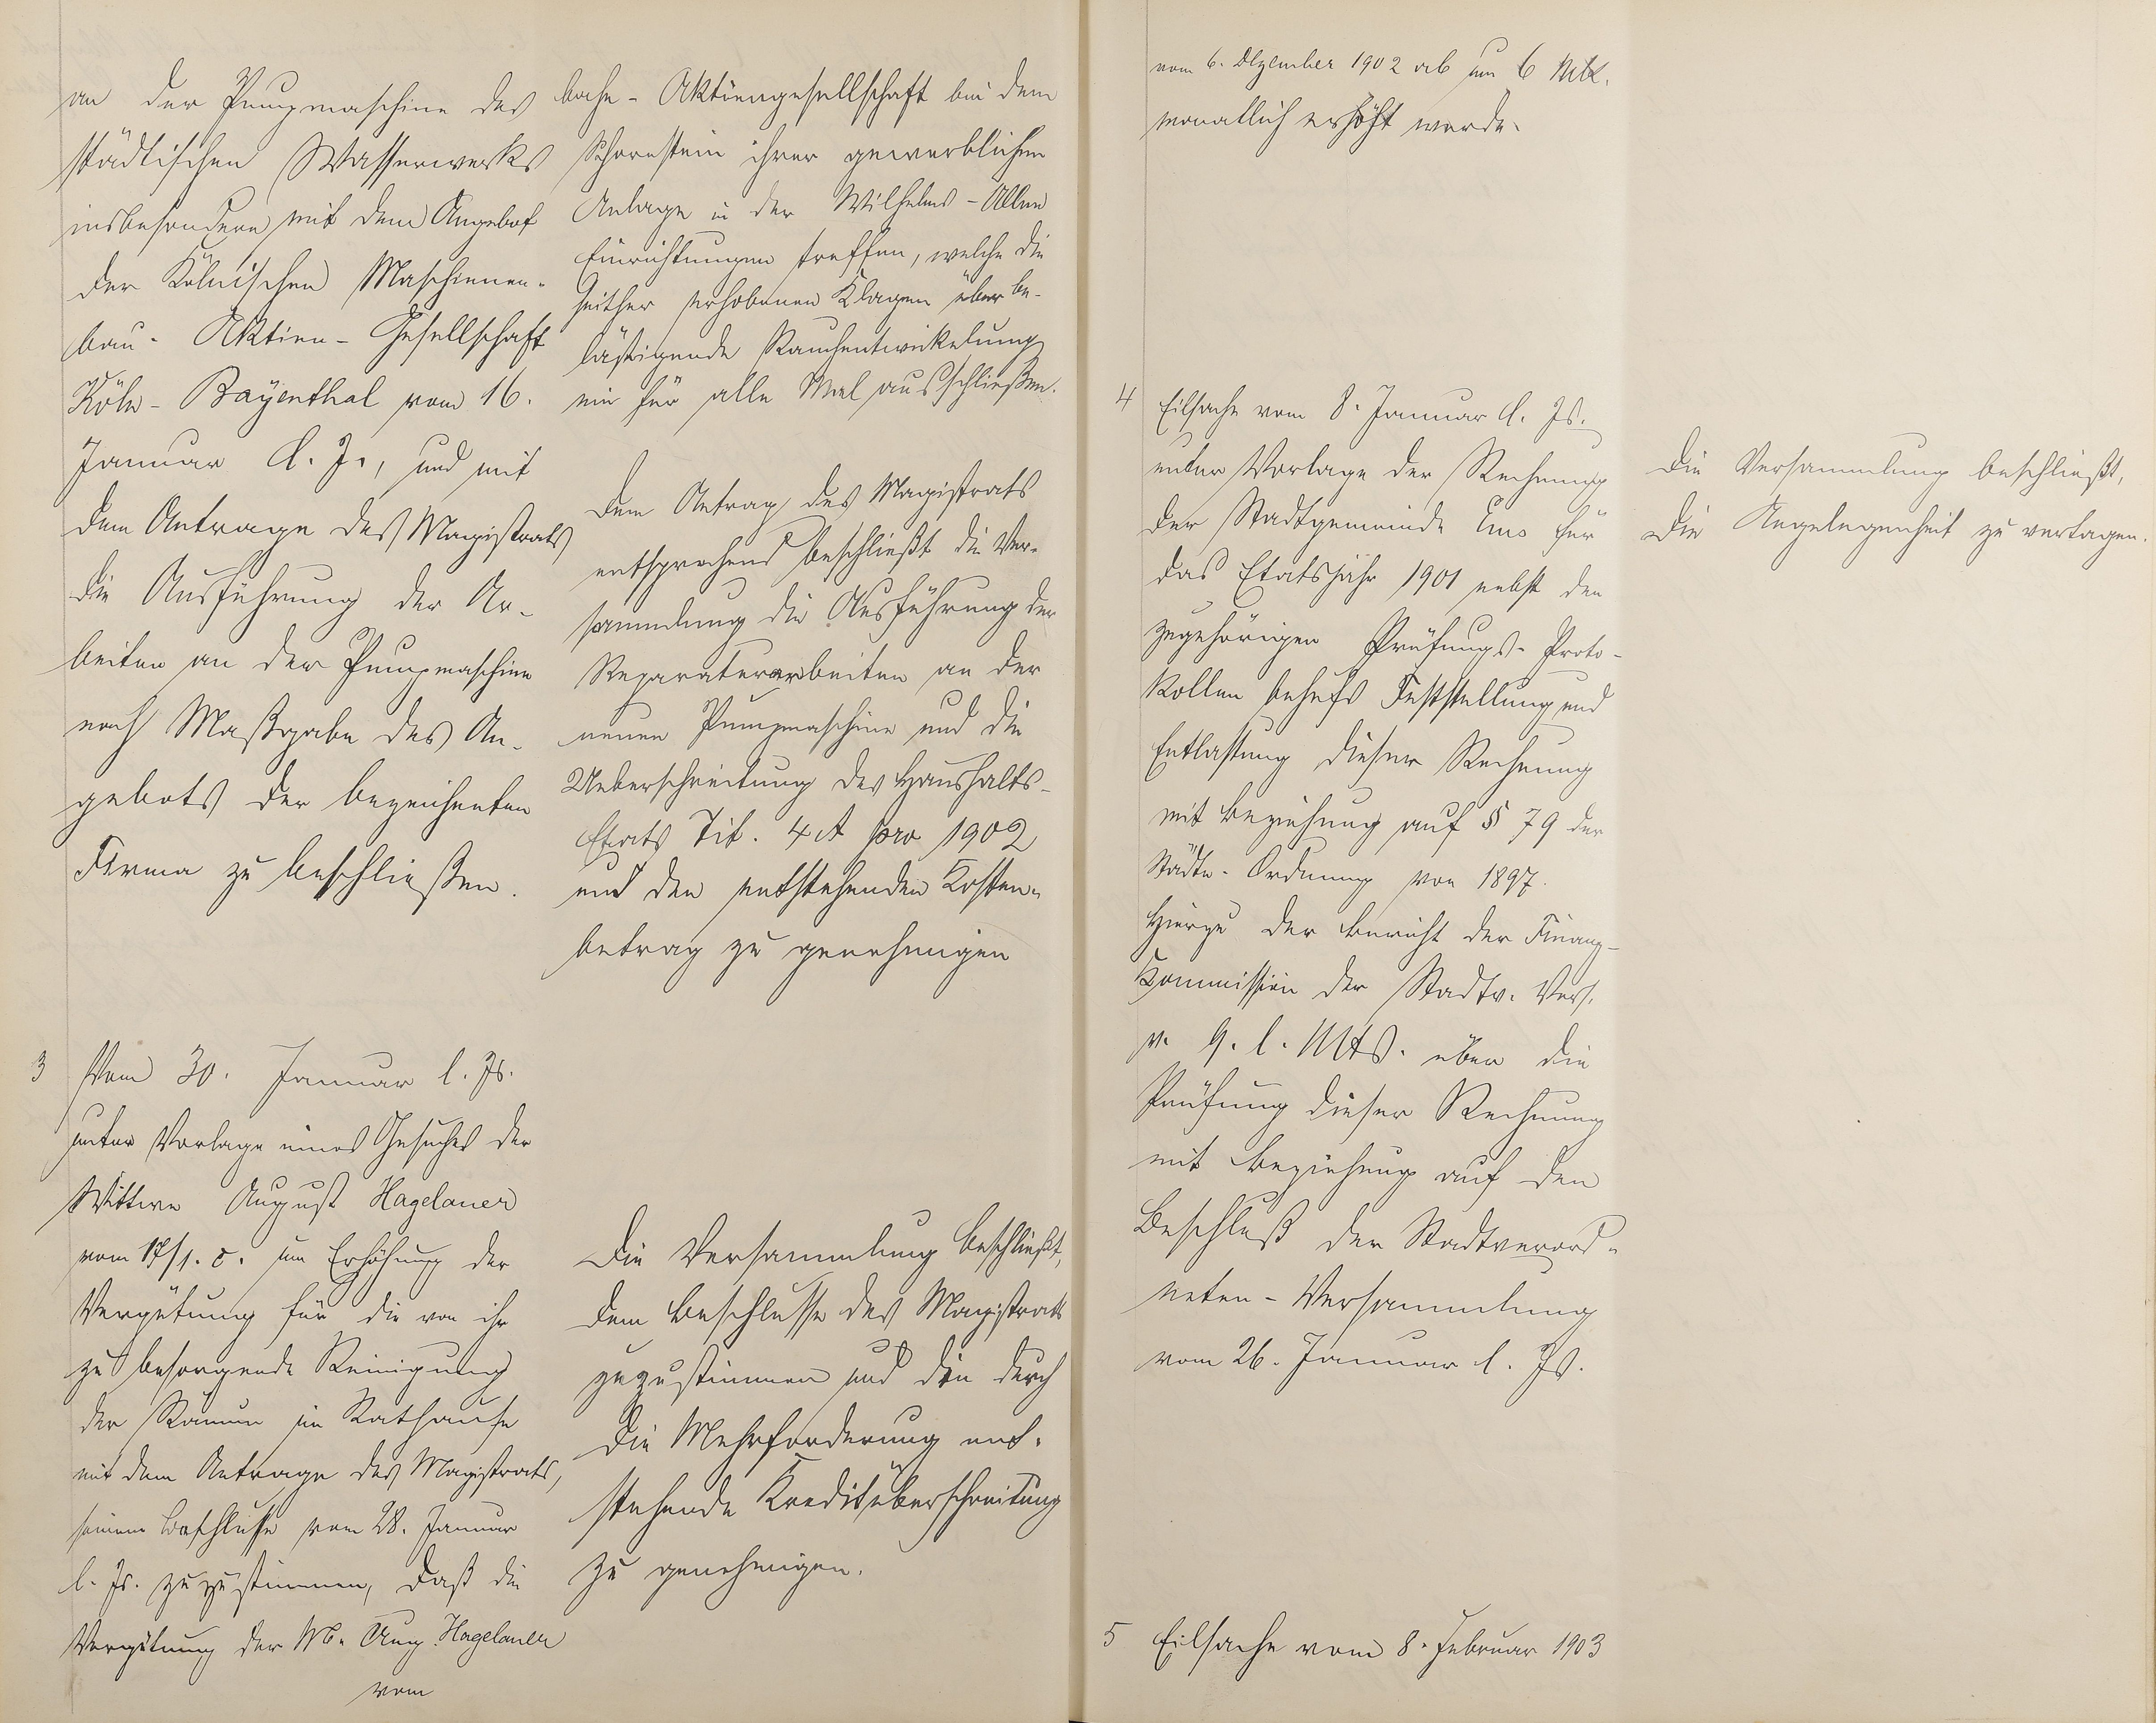 an der Pumpmaschine des
städtischen Wasserwerks
insbesondere mit dem Angebot
der Kölnischen Maschinen-
bau- Aktien- Gesellschaft
Köln- Bayenthal vom 16.
Januar l. J., und mit
dem Antrage des Magistrats
die Ausführung der Ar-
beiten an der Pumpmaschine
nach Maßgabe des An-
gebots der bezeichneten
Firma zu beschließen.
3 Vom 30. Januar l. Js.
unter Vorlage eines Gesuches der
Wittwe August Hagelauer
vom 17/1. c. um Erhöhung der
Vergütung für die von ihr
zu besorgende Reinigung
der Räume im Rathause
mit dem Antrage des Magistrats,
seinem Beschlusse vom 28. Januar
l. Js. zuzustimmen, daß die
Vergütung der W. Aug. Hagelauer
vom
bahn- Aktiengesellschaft bei dem
Schornstein ihrer gewerblichen
Anlage in der Wilhelms-Allee
Einrichtungen treffen, welche die
seither erhobenen Klagen über be-
lästigende Rauchentwickelung
ein für alle Mal ausschließen.
Dem Antrag des Magistrats
entsprechend beschließt die Ver-
sammlung die Ausführung der
Reparaturarbeiten an der
neuen Pumpmaschine und die
Ueberschreitung des Haushalts-
Etats Tit. 4 A pro 1902
und den entstehenden Kosten-
betrag zu genehmigen
Die Versammlung beschließt,
dem Beschlusse des Magistrats
zuzustimmen und die durch
die Mehrforderung ent-
stehende Kreditüberschreitung
zu genehmigen.
vom 6. Dezember 1902 ab um 6 Mk.
monatlich erhöht werde.
4 Eilsache vom 8. Januar l. Js.
unter Vorlage der Rechnung
der Stadtgemeinde Ems für
das Etatsjahr 1901 nebst den
zugehörigen Prüfungs- Proto-
kollen behufs Feststellung und
Entlastung dieser Rechnung
mit Beziehung auf § 79 der
Städte- Ordnung von 1897.
Hierzu der Bericht der Finanz-
Kommission der Stadtv. Vers.
v. 9. l. Mts. über die
Prüfung dieser Rechnung
mit Beziehung auf den
Beschluß der Stadtverord-
neten- Versammlung
vom 26. Januar l. Js.
5 Eilsache vom 8. Februar 1903
Die Versammlung beschließt,
die Angelegenheit zu vertagen.